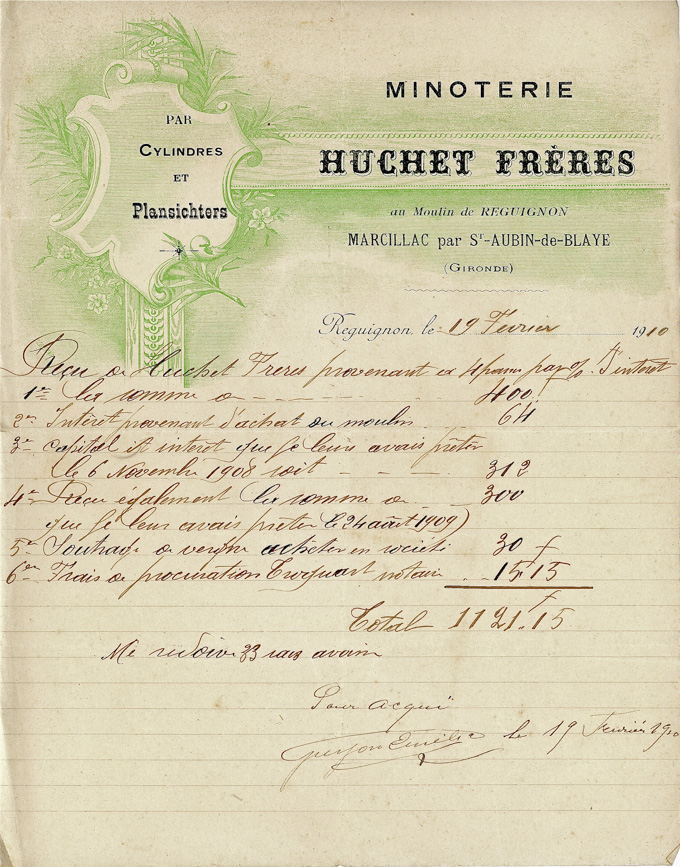 PAR
CYLINDRES
ET
Plansichters
MINOTERIE
HUCHET FRÈRES
au Moulin de REGUIGNON
MARCILLAC par ST-AUBIN-de-BLAYE
(GIRONDE)
Reguignon, le 19 Fevrier 1910
Reçu de Huchet Freres provenant a 4 franc par % d'interet
1re la somme de 400f
2e Interet provenant d'achat du moulin 64
3e capital et interet que je leurs avais prêter
(le 6 Novembre 1908 soit 312
4e Reçu également la somme de 300
que je leur avais prêter le 24 août 1909)
5e Soutrage de vergne acheter en société 30 f
6e Frais de procuration notaire 15f15
Total 1121f15
Me redoive 33 sacs avoine
Pour acquit
le 19 Fevrier 1910